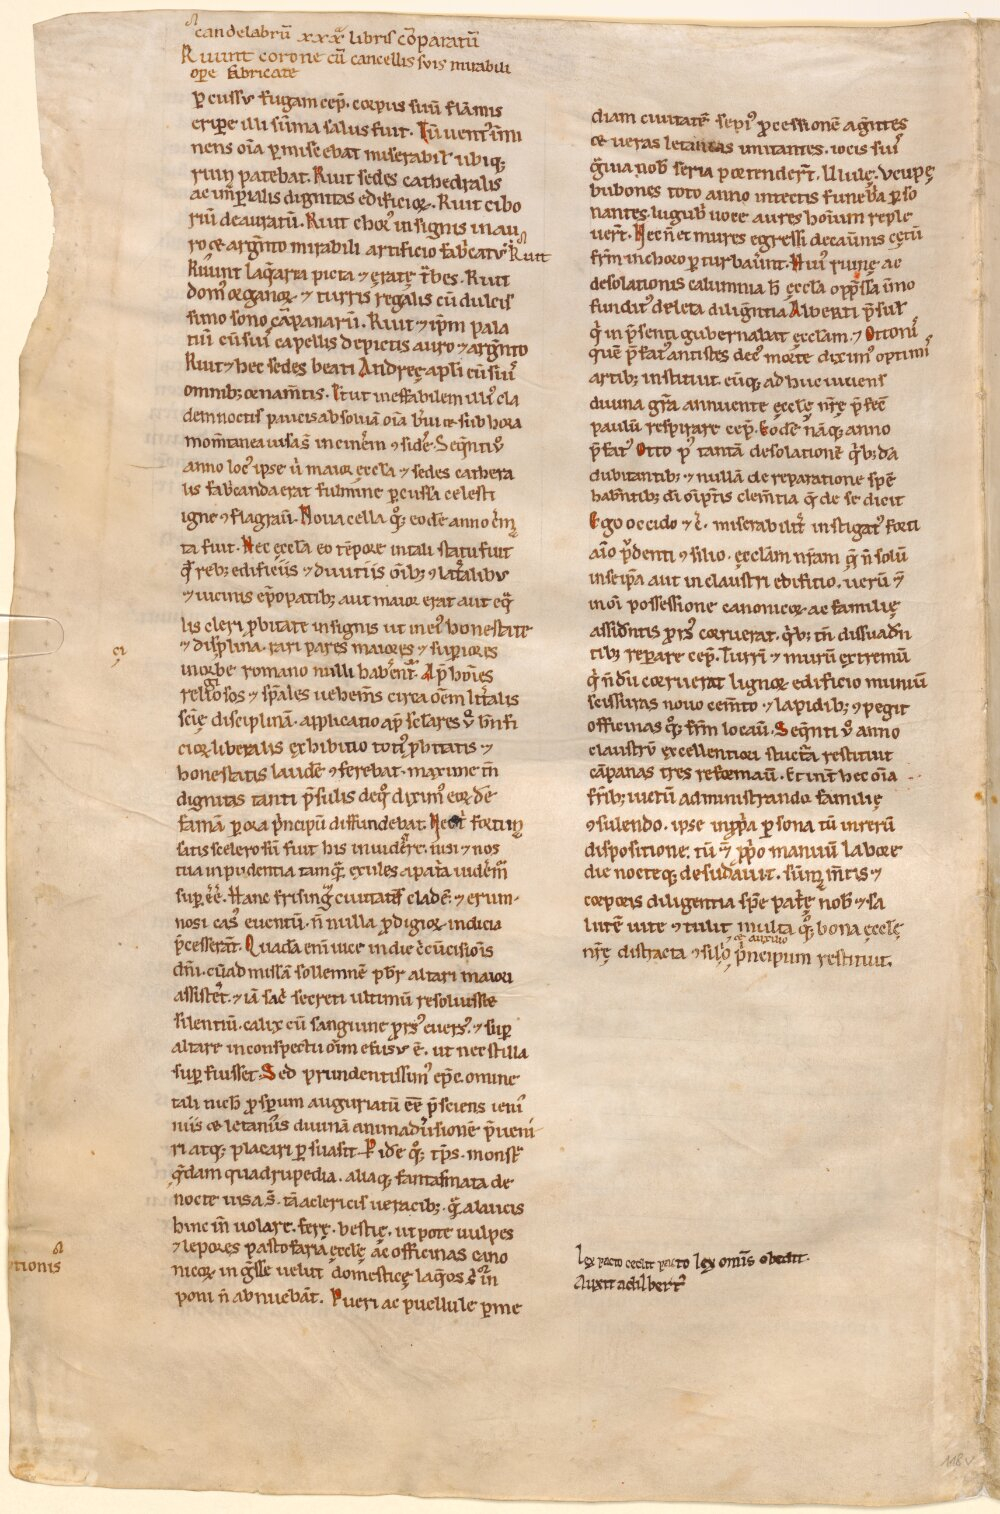 candelabrū xxxᵃ libris cōparatū
Ruunt corone cū cancellis suis mirabili
ope fabricate
ꝑcussu fugam cep̄. corpus suū flāmis
eripe illi sūma salus fuit. Tū uent᷒ īmi
nens oīa ꝑmiscebat miserabilr̄ ubiqꝫ
ruin patebat. Ruit sedes cathedralis
ac imꝑialis dignitas edificioꝝ. Ruit cibo
riū deauratū. Ruit chor᷒ insignis in au
ro ⁊ argēto mirabili artificio fab̄catu᷒ Ruit
Ruunt laq̄aria picta ⁊ ęratę t̄bes. Ruit
dom᷒ organoꝝ ⁊ turris regalis cū dulcis
simo sono cāpanarū. Ruit ⁊ ip̄m pala
tiū cū suis capellis depictis auro ⁊ argēto
Ruit ⁊ hec sedes beati Andreę apli cū suis
omnibꝫ ornam̄tis. Et ut ineffabilem illi᷒ cla
dem noctis paucis absoluā oīa b̄ui ⁊ sub hora
mom̄tanea uisa s̄ in cinē͞m ꝯsidē. Seq̄nti ū
anno loc᷒ ipse ū maior ęccla ⁊ sedes cathera
lis fab̄canda erat fulmine ꝑcussa celesti
igne ꝯflagrau̅. Noua cella qꝫ eodē anno c̄m
ta fuit. Hec ęccla eo tēpore in tali statu fuit
q̄ rebꝫ edificiis ⁊ diuitiis oībꝫ ꝯlat̄alibu᷒
⁊ uicinis ep̄opatibꝫ aut maior erat aut eq̄
lis cleri ꝓbitate insignis ut in ei᷒ honestate
⁊ discīplina. rari pares maiores ⁊ supiores
in orbe romano nulli habent͛. Ap̄ hoīes
religiosos ⁊ sp̄ales uehem̄s circa oēm litt̄alis
scię disciplinā. applicatio ap̄ sclares ū bn̄fi
cioꝝ liberalis exhibitio toti᷒ ꝓbitatis ⁊
honestatis laudē ꝯferebat. maxime tn̄
dignitas tanti p̄sulis de qᵒ dixim᷒ eoꝝ dē
famā ꝑ ora p̄ncipū diffundebat. Nec t̄ fortun
satis scelerosū fuit his inuidere. nisi ⁊ nos
tua inpudentia tamq̄ exules a pat̄a uidēm᷒
sup ēē. Hanc frisingę ciuitatis cladē. ⁊ erum-
nosi cas᷒ euentū. n̄ nulla ꝓdigioꝝ indicia
p̄cesserāt. Quadā enī uice in die c̄cūcisionis
dn̄i. cū ad missā sollemnē pb̄r altari maiori
assistet͛. ⁊ iā sac̄ secreti ultimū resoluisse
silentiū. calix cū sanguine ꝓrs᷒ euers᷒. ⁊ sup
altare in conspectu oīm efusu᷒ ē. ut nec stilla
supfuisset. Sed prudentissim᷒ ep̄c omine
tali nich̄ ꝓsꝑum auguriatū ēē p̄sciens ieiu᷒
niis ⁊ letaniis diuinā animaduersionē p̄ueni
ri atqꝫ placari ꝑsuasit. P idē qꝫ tp̄s. monst᷒
q̄dam quadrupedia. aliaqꝫ fantasmata de
nocte uisa s̄. tā a clericis ueracibꝫ q̄ a laicis
hinc in̄ uolare. ferę. bestię. ut pote uulpes
⁊ lepores pastofaria ęcclę ac officinas cano
nicoꝝ in ḡsse uelut domesticę laq̄os c̄ in
poni n̄ abnuebāt. Pueri ac puellule ꝑ me
diam ciuitatē sepi᷒ ꝓcessionē agentes
⁊ ueras letanias imitantes. iocis suis
ḡuia nob̄ seria portenderūt. Ululę. ⁊ cupę
bubones toto anno in tectis funeb̄a ꝑso
nantes. lugub̄ uoce aures hoīum reple
uer̄t. Necn̄ et mures egressi de cauernis cętū
frīm in choro ꝑturbauer̄nt. Hui᷒ ruinę ac
desolationis calumnia h̄ ęccla opp̄ssa imo
fundit᷒ deleta diligētia Alberti p̄sulis
q̄ in p̄senti gubernabat ęccłam. ⁊ Ottonis
quē p̄fat᷒ antistes dec᷒ morte dixim᷒ optimis
artibꝫ instituit. eūqꝫ ad huc uiuens
diuina gr̄a annuente ęcclę nr̄ę p̄fec̄
paulū respirare cep̄. Eodē nāqꝫ anno
p̄fat᷒ Otto p᷒ tantā desolationē q̄bꝫ dā
dubitantibꝫ ⁊ nullā de reparatione spē
habētibꝫ dī oīpn̄tis clem̄tia q̄ de se dicit
Ego occido ⁊ c̄. miserabilit͛ instigat᷒ forti
aīo p̄denti ꝯsilio. ęccłam nr̄am q̄ n̄ solū
in se ip̄a aut in claustri edificio. uerū ⁊
in oī possessione canonicoꝝ ac familię
assidentis ꝓrs᷒ corruerat. q̄bꝫ tn̄ dissuadn̄
tibꝫ reparare cep̄. Turrī ⁊ murū extremū
q̄ n̄dū corruerat lignoꝝ edificio muniū
scissuras nouo cem̄to ⁊ lapidibꝫ ꝯpegit
officinas qꝫ frīm locau̅. Seq̄nti ū anno
claustrū excellentiori stuct̄a restituit
cāpanas tres reformau̅. Et int͛ hec oīa
fr̄ibꝫ uictū administrando. familię
ꝯsulendo. ipse in ꝓp̄a ꝑsona tū in rerū
dispositione. tū ⁊ ꝓp̄o manuū labore
die nocteqꝫ desudauit. sūmꝫ m̄tis ⁊
corporis diligentia spē pat̄ę nob̄ ⁊ sa
lutē uite ⁊ tulit multa qꝫ bona ęcclę
⁊ auxilio
nr̄ę distracta ꝯsilio p̄ncipum restituit.
Lex pacto cedit pacto lex omīs obedit.
Auxit adilbert᷒
ci
tionis
118v